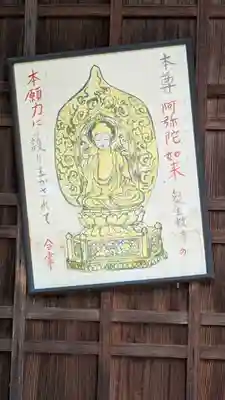 本尊 阿弥陀如来
本願力に護り生かされて
合掌